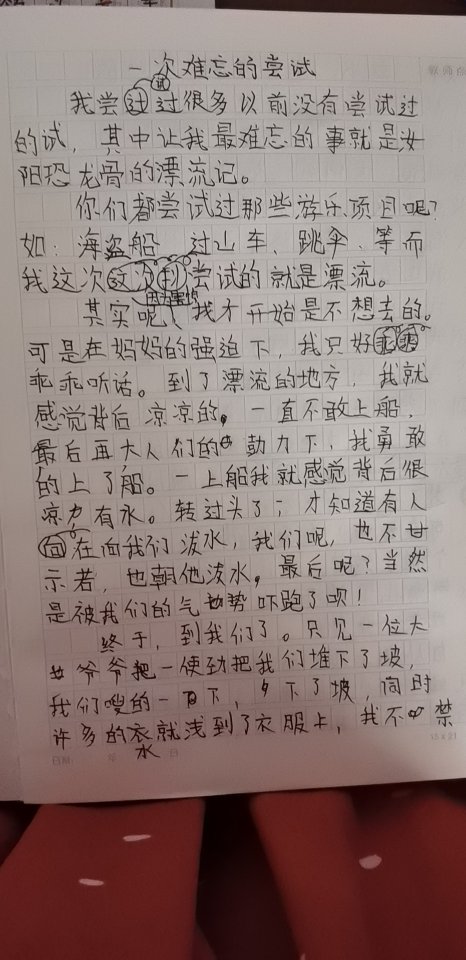 一次难忘的尝试
我尝试过很多以前没有尝试过
的试，其中让我最难忘的事就是汝
阳恐龙骨的漂流记。
你们都尝试过那些游乐项目呢？
如：海盗船、过山车、跳伞、等而
我这次尝试的就是漂流。
其实呢，我才开始是不想去的。
可是在妈妈的强迫下，我只好
乖乖听话。到了漂流的地方，我就
感觉背后凉凉的，一直不敢上船，
最后再大人们的劝力下，我勇敢
的上了船。一上船我就感觉背后很
凉有水。转过头了；才知道有人
在向我们泼水，我们呢，也不甘
示若，也朝他泼水，最后呢？当然
是被我们的气势吓跑了呗！
终于，到我们了。只见一位大
爷爷一使劲把我们堆下了坡，
我们嗖的一下，下了坡，同时
许多的水就浅到了衣服上，我不禁
教师
15×21
日期 年 月 日